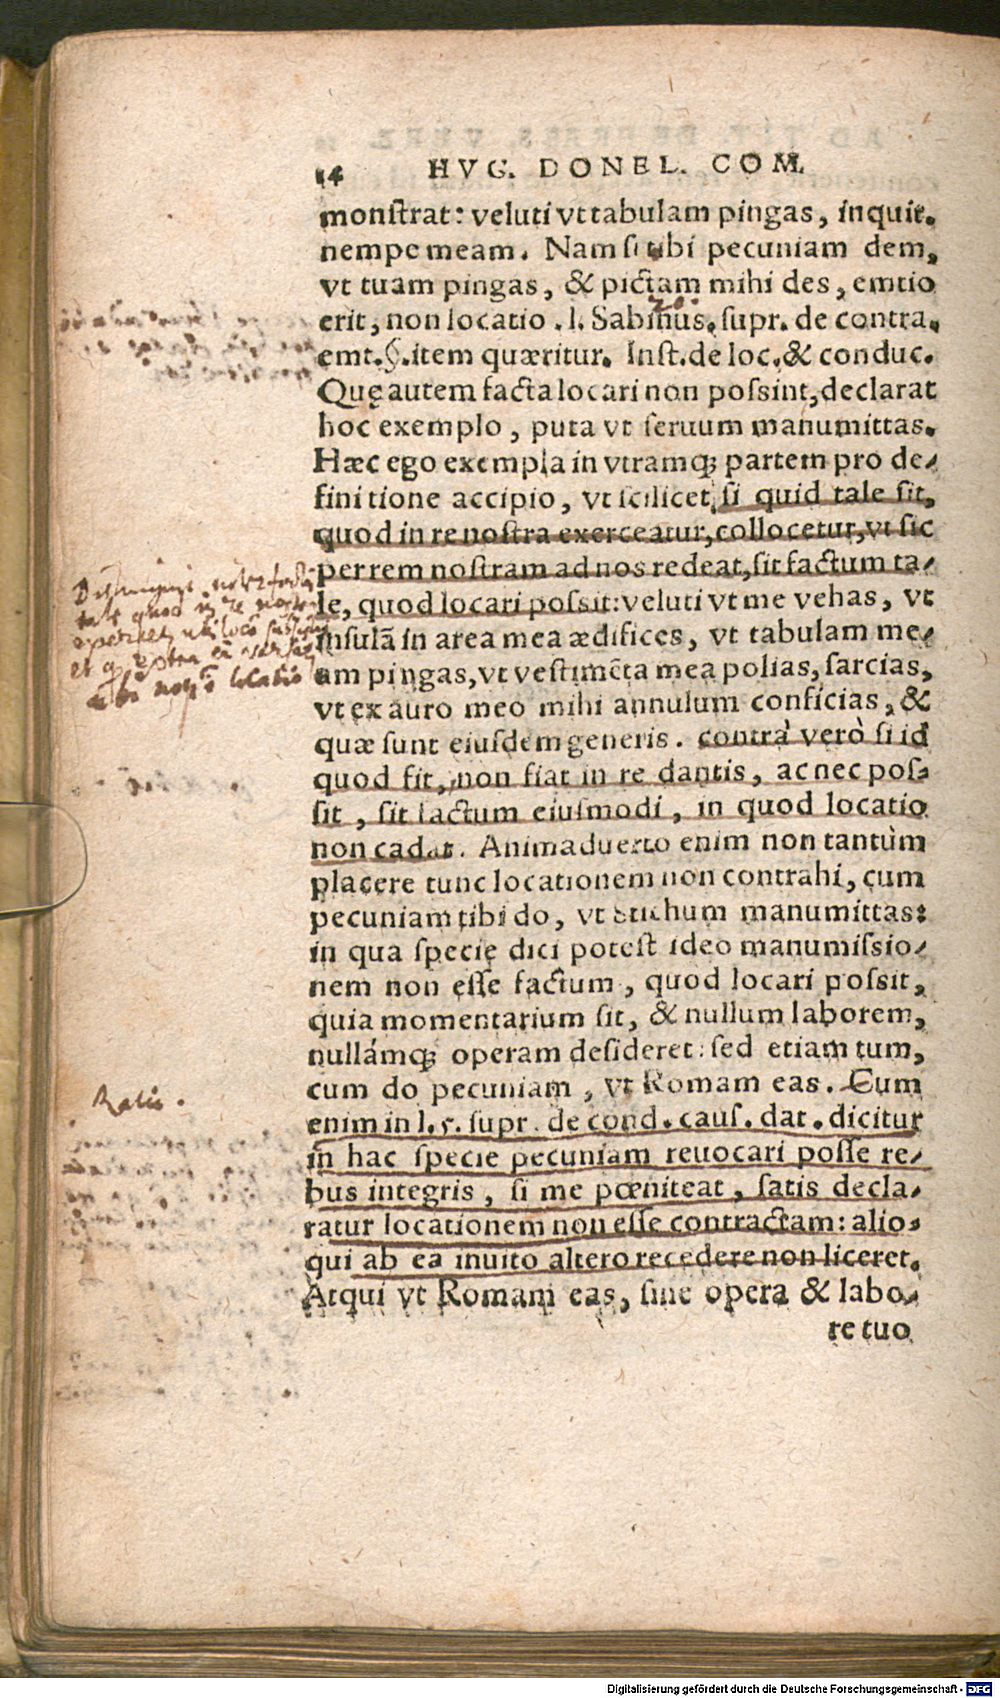 14 HVG. DONEL. COM.
monstrat: veluti vt tabulam pingas, inquit.
nempe meam. Nam si tibi pecuniam dem,
vt tuam pingas, & pictam mihi des, emtio
20.
erit, non locatio. l. Sabinus. supr. de contra.
emt. §. item quæritur. Inst. de loc. & conduc.
Quę autem facta locari non possint, declarat
hoc exemplo, puta vt seruum manumittas.
Hæc ego exempla in vtramq; partem pro de-
finitione accipio, vt scilicet, si quid tale sit,
quod in re nostra exerceatur, collocetur, vt sic
per rem nostram ad nos redeat, sit factum ta-
le, quod locari possit: veluti vt me vehas, vt
insulā in area mea ædifices, vt tabulam me-
am pingas, vt vestimēta mea polias, sarcias,
vt ex auro meo mihi annulum conficias, &
quæ sunt eiusdem generis. contrà verò si id
quod fit, non fiat in re dantis, ac nec pos-
sit, sit factum eiusmodi, in quod locatio
non cadat. Animaduerto enim non tantùm
placere tunc locationem non contrahi, cum
pecuniam tibi do, vt Stichum manumittas:
in qua specie dici potest ideo manumissio-
nem non esse factum, quod locari possit,
quia momentarium sit, & nullum laborem,
nullámq; operam desideret: sed etiam tum,
cum do pecuniam, vt Romam eas. Cum
enim in l. 5. supr. de cond. caus. dat. dicitur
in hac specie pecuniam reuocari posse re-
bus integris, si me pœniteat, satis decla-
ratur locationem non esse contractam: alio-
qui ab ea inuito altero recedere non liceret.
Atqui vt Romam eas, sine opera & labo-
re tuo
Ratio.
Digitalisierung gefördert durch die Deutsche Forschungsgemeinschaft - DFG